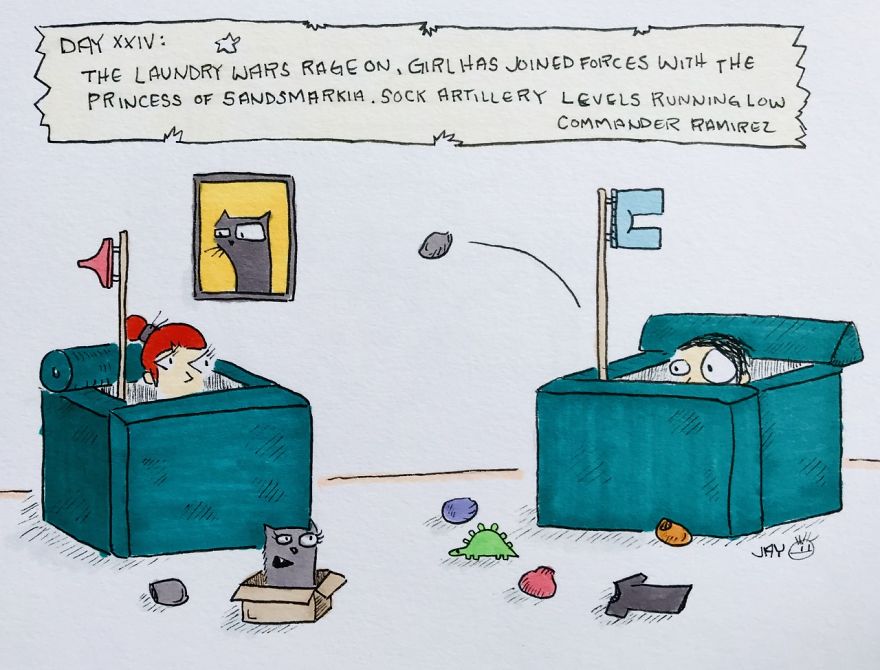 DAY XXIV:
THE LAUNDRY WARS RAGE ON. GIRL HAS JOINED FORCES WITH THE
PRINCESS OF SANDSMARKIA. SOCK ARTILLERY LEVELS RUNNING LOW
COMMANDER RAMIREZ
JAY